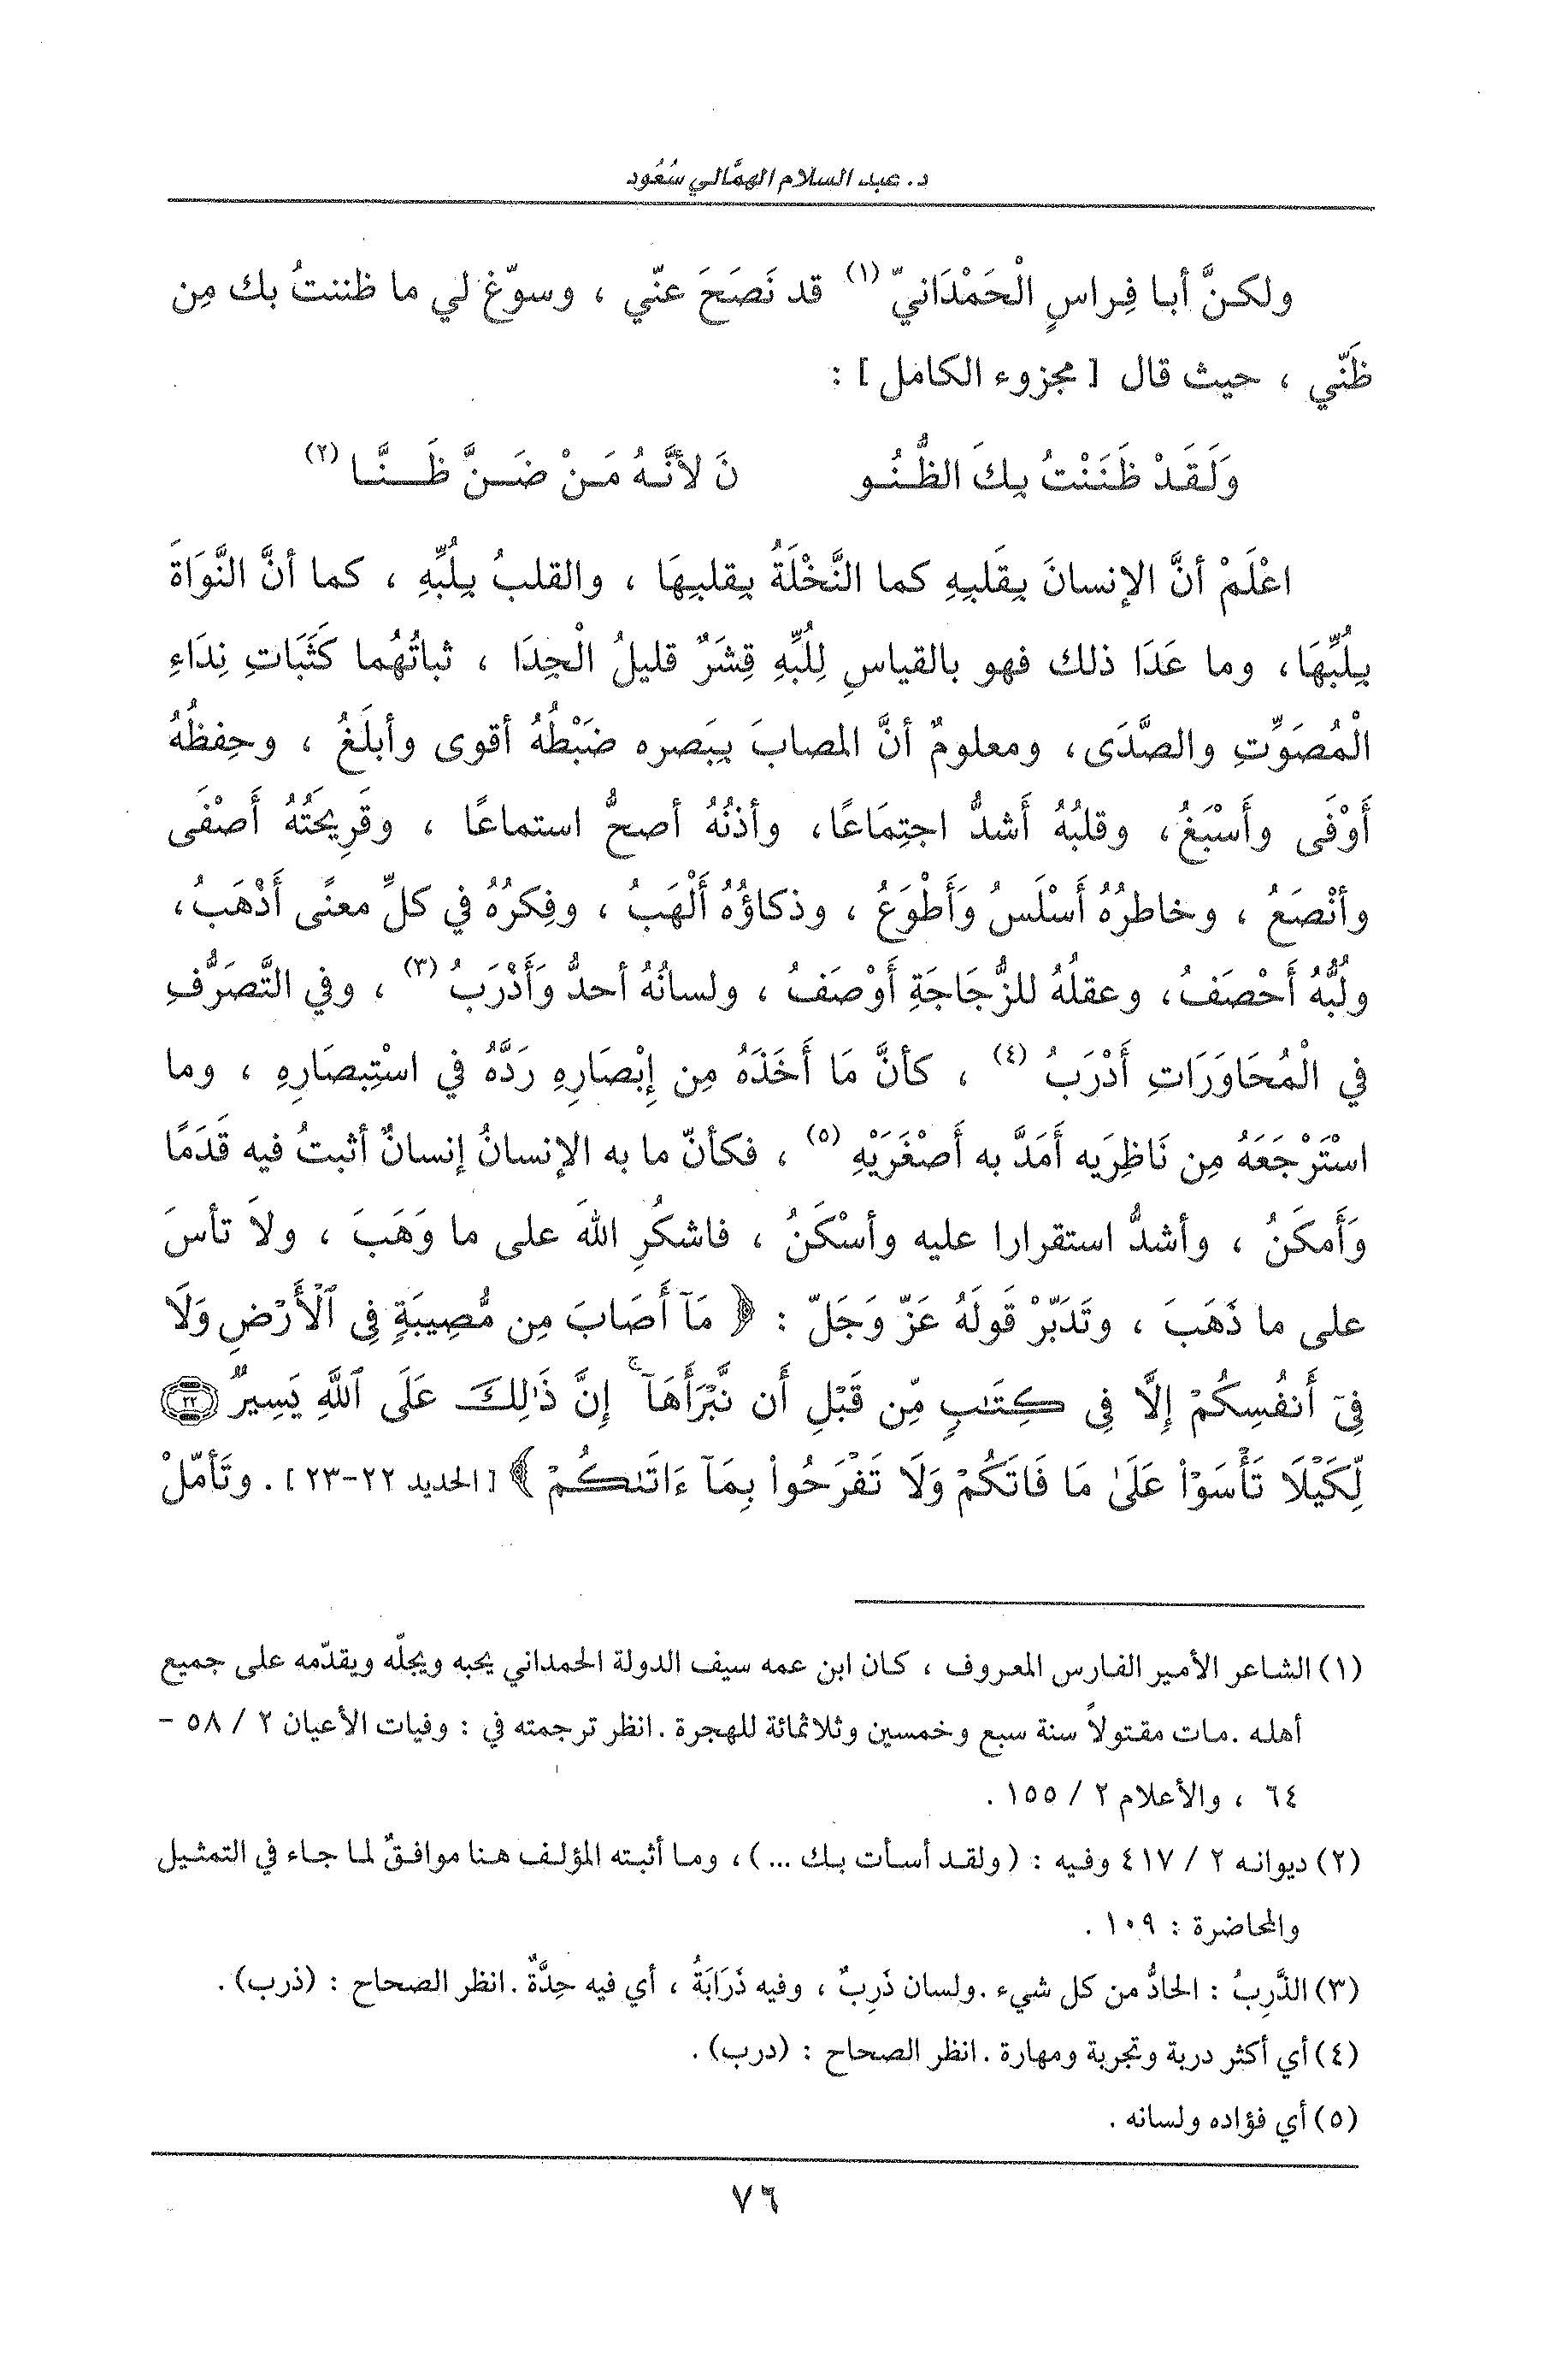 د. عبد السلام الهمّالي سُعُود
ولكنَّ أبا فِراسٍ الْحَمْدَانيّ (١) قد نَصَحَ عنّي ، وسوّغ لي ما ظننتُ بك مِن
ظَنّي ، حيث قال [ مجزوء الكامل ] :
وَلَقَدْ ظَنَنْتُ بِكَ الظُّنُو نَ لأنَّهُ مَنْ ضَنَّ ظَنَّا (٢)
اعْلَمْ أنَّ الإنسانَ بِقَلبِهِ كما النَّخْلَةُ بِقلبِهَا ، والقلبُ بِلُبِّهِ ، كما أنَّ النَّوَاةَ
بِلُبِّهَا، وما عَدَا ذلك فهو بالقياسِ لِلُبِّهِ قِشَرٌ قليلُ الْجِدَا ، ثباتُهُما كَثَبَاتِ نِدَاءِ
الْمُصَوِّتِ والصَّدَى، ومعلومٌ أنَّ المصابَ بِبَصره ضَبْطُهُ أقوى وأبلَغُ ، وحِفظُهُ
أَوْفَى وأَسْبَغُ، وقلبُهُ أَشدُّ اجتِمَاعًا، وأذنُهُ أصحُّ استماعًا ، وقَرِيحَتُهُ أَصْفَى
وأنْصَعُ ، وخاطرُهُ أَسْلَسُ وَأَطْوَعُ ، وذكاؤُهُ أَلْهَبُ ، وفِكرُهُ في كلِّ معنًى أَذْهَبُ،
ولُبُّهُ أَحْصَفُ، وعقلُهُ للزُّجَاجَةِ أَوْصَفُ ، ولسانُهُ أحدُّ وَأَذْرَبُ (٣) ، وفي التَّصَرُّفِ
في الْمُحَاوَرَاتِ أَدْرَبُ (٤) ، كأنَّ مَا أَخَذَهُ مِن إِبْصَارِهِ رَدَّهُ في اسْتِبصَارِهِ ، وما
اسْتَرْجَعَهُ مِن نَاظِرَيه أَمَدَّ به أَصْغَرَيْهِ (٥) ، فكأنّ ما به الإنسانُ إنسانٌ أثبتُ فيه قَدَمًا
وَأَمكَنُ ، وأشدُّ استقرارا عليه وأسْكَنُ ، فاشكُرِ اللهَ على ما وَهَبَ ، ولاَ تأسَ
على ما ذَهَبَ ، وتَدَبّرْ قَولَهُ عَزّ وَجَلّ : ﴿ مَآ أَصَابَ مِن مُّصِيبَةٍ فِى ٱلْأَرْضِ وَلَا
فِىٓ أَنفُسِكُمْ إِلَّا فِى كِتَـٰبٍ مِّن قَبْلِ أَن نَّبْرَأَهَآ ۚ إِنَّ ذَٰلِكَ عَلَى ٱللَّهِ يَسِيرٌ ۝٢٢
لِّكَيْلَا تَأْسَوْا۟ عَلَىٰ مَا فَاتَكُمْ وَلَا تَفْرَحُوا۟ بِمَآ ءَاتَىٰكُمْ ﴾ [الحديد ٢٢-٢٣] . وتَأمّلْ
(١) الشاعر الأمير الفارس المعروف ، كان ابن عمه سيف الدولة الحمداني يحبه ويجلّه ويقدّمه على جميع
أهله .مات مقتولاً سنة سبع وخمسين وثلاثمائة للهجرة .انظر ترجمته في : وفيات الأعيان ٢ / ٥٨ -
٦٤ ، والأعلام ٢ / ١٥٥ .
(٢) ديوانه ٢ / ٤١٧ وفيه : (ولقد أسأت بك ...)، وما أثبته المؤلف هنا موافقٌ لما جاء في التمثيل
والمحاضرة : ١٠٩ .
(٣) الذَّرِبُ : الحادُّ من كل شيء .ولسان ذَرِبٌ ، وفيه ذَرَابَةُ ، أي فيه حِدَّةٌ .انظر الصحاح : (ذرب) .
(٤) أي أكثر دربة وتجربة ومهارة .انظر الصحاح : (درب) .
(٥) أي فؤاده ولسانه .
٧٦